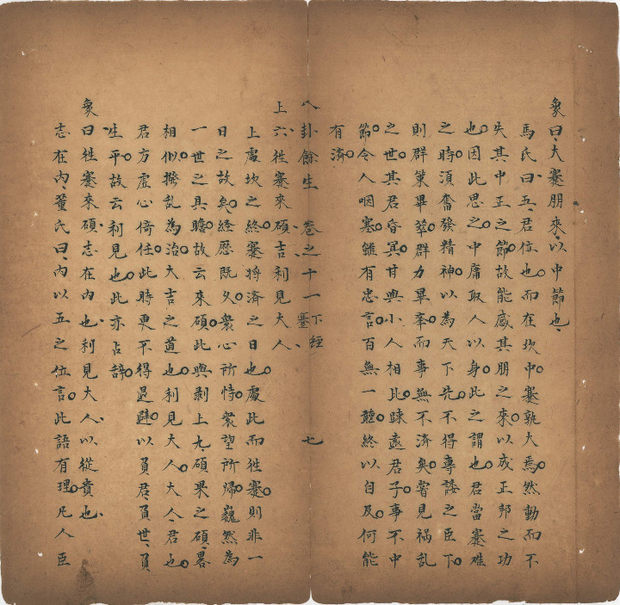 象曰、大蹇朋來、以中節也、
馬氏曰、五君位也、而在坎中、蹇孰大焉、然動而不
失其中正之節、故能感其朋之來、以成正邦之功
也、因此思之、中庸取人以身、此之謂也、君當蹇難
之時、須奮發精神、以為天下先、不得專諉之臣下、
則群策畢萃、群力畢奉、而事無不濟矣、嘗見禍亂
之世、其君昏冥、甘與小人相比、疎遠君子、事不中
節、令人咽塞、雖有忠言、百無一聽、終以自及、何能
有濟、
八卦餘生 卷之十一 下經 蹇 七
上六、往蹇來碩、吉、利見大人、
上處坎之終、蹇將濟之日也、處此而往蹇、則非一
日之故矣、終歷既久、衆心所恃、衆望所歸、巍然為
一世之具瞻、故云來碩、此與剝上九碩果之碩畧
相似、撥亂為治、大吉之道也、利見大人、大人、君也、
君方虛心倚任、此時更不得退避、以負君負世負
生平、故云利見也、此亦占辭、
象曰、往蹇來碩、志在內也、利見大人、以從貴也、
志在內、董氏曰、內以五之位言、此語有理、凡人臣